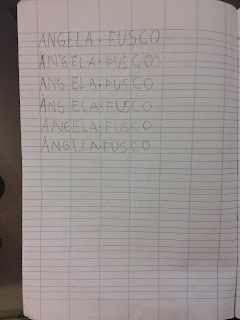 ANGELA • FUSCO
ANGELA • FUSCO
ANG ELA • PUSCO
ÀNG ELA • FUSCO
ÀNGELA • FUSCO
ÀNGLLA • FUSCO